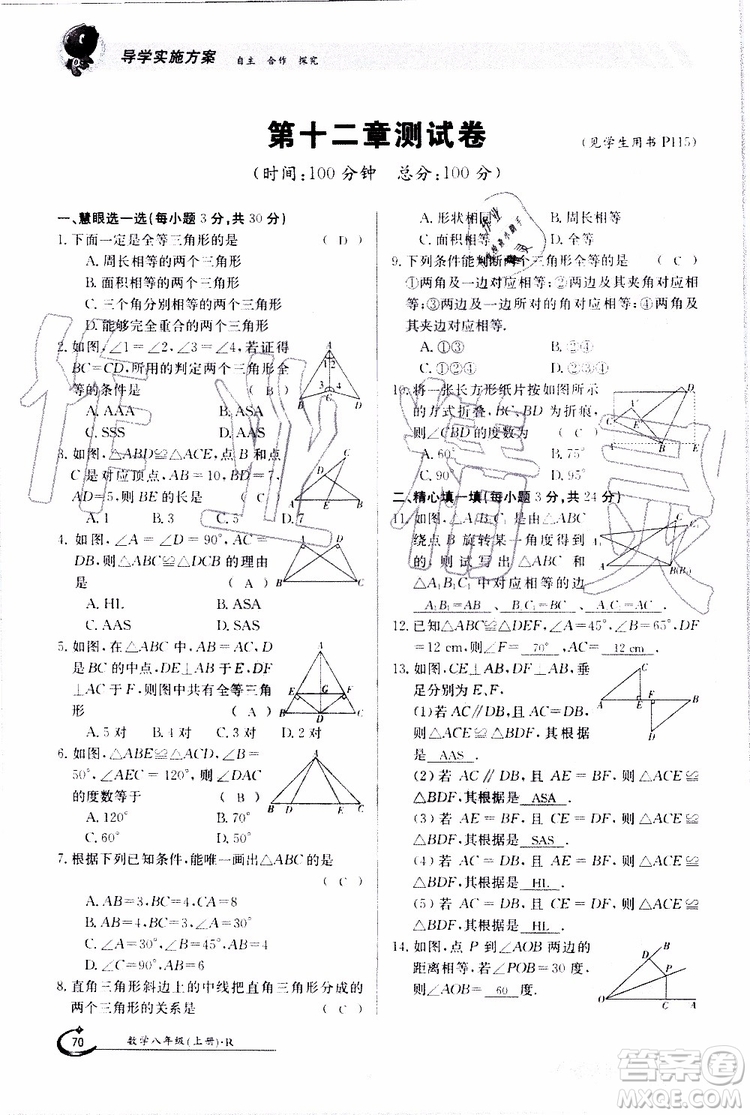 导学实施方案 自主 合作 探究
第十二章测试卷
(见学生用书 P115)
(时间:100分钟 总分:100分)
一、慧眼选一选(每小题3分,共30分)
1. 下面一定是全等三角形的是 ( D )
A. 周长相等的两个三角形
B. 面积相等的两个三角形
C. 三个角分别相等的两个三角形
D. 能够完全重合的两个三角形
2. 如图,∠1=∠2,∠3=∠4,若证得
BC=CD,所用的判定两个三角形全
等的条件是 ( B )
A. AAA B. ASA
C. SSS D. SSA
3. 如图,△ABD≌△ACE,点B和点
C是对应顶点,AB=10,BD=7,
AD=5,则BE的长是 ( C )
A. 1 B. 3 C. 5 D. 7
4. 如图,∠A=∠D=90°,AC=
DB,则△ABC≌△DCB的理由
是 ( A )
A. HL B. ASA
C. AAS D. SAS
5. 如图,在△ABC中,AB=AC,D
是BC的中点,DE⊥AB于E,
DF⊥AC于F,则图中全等三角
形 ( A )
A. 5对 B. 4对 C. 3对 D. 2对
6. 如图,△ABE≌△ACD,∠B=
50°,∠AEC=120°,则∠DAC
的度数等于 ( B )
A. 120° B. 70°
C. 60° D. 50°
7. 根据下列已知条件,能唯一画出△ABC的是
( C )
A. AB=3,BC=4,CA=8
B. AB=4,BC=3,∠A=30°
C. ∠A=30°,∠B=45°,AB=4
D. ∠C=90°,AB=6
8. 直角三角形斜边上的中线把直角三角形分成的
两个三角形的关系是 ( C )
A. 形状相同 B. 周长相等
C. 面积相等 D. 全等
9. 下列条件能判断两个三角形全等的是 ( C )
①两角及一边对应相等;②两边及其夹角对应
相等;③两边及一边所对的角对应相等;④两角及
其夹边对应相等.
A. ①③ B. ②④
C. ①②④ D. ②③④
10. 将一张长方形纸片按如图所示
的方式折叠,BC,BD为折痕,
则∠CBD的度数为 ( C )
A. 60° B. 75°
C. 90° D. 95°
二、精心填一填(每小题3分,共24分)
11. 如图,△A₁BC₁是由△ABC
绕点B旋转某一角度得到
的,则试写出△ABC和
△A₁BC₁中对应相等的边
A₁B=AB、B₁C₁=BC、A₁C₁=AC.
12. 已知△ABC≌△DEF,∠A=45°,∠B=65°,DF
=12 cm,则∠F= 70°,AC= 12 cm.
13. 如图,CE⊥AB,DF⊥AB,垂
足分别为E,F,
(1)若AC∥DB,且AC=DB,则△ACE≌△BDF,其根据是
AAS.
(2)若AC∥DB,且AE=BF,则△ACE≌
△BDF,其根据是 ASA.
(3)若AE=BF,且CE=DF,则△ACE≌
△BDF,其根据是 SAS.
(4)若AC=DB,且AE=BF,则△ACE≌
△BDF,其根据是 HL.
(5)若AC=DB,且CE=DF,则△ACE≌
△BDF,其根据是 HL.
14. 如图,点P到∠AOB两边的
距离相等,若∠POB=30°,
则∠AOB= 60 度.
70 数学八年级(上册)·R